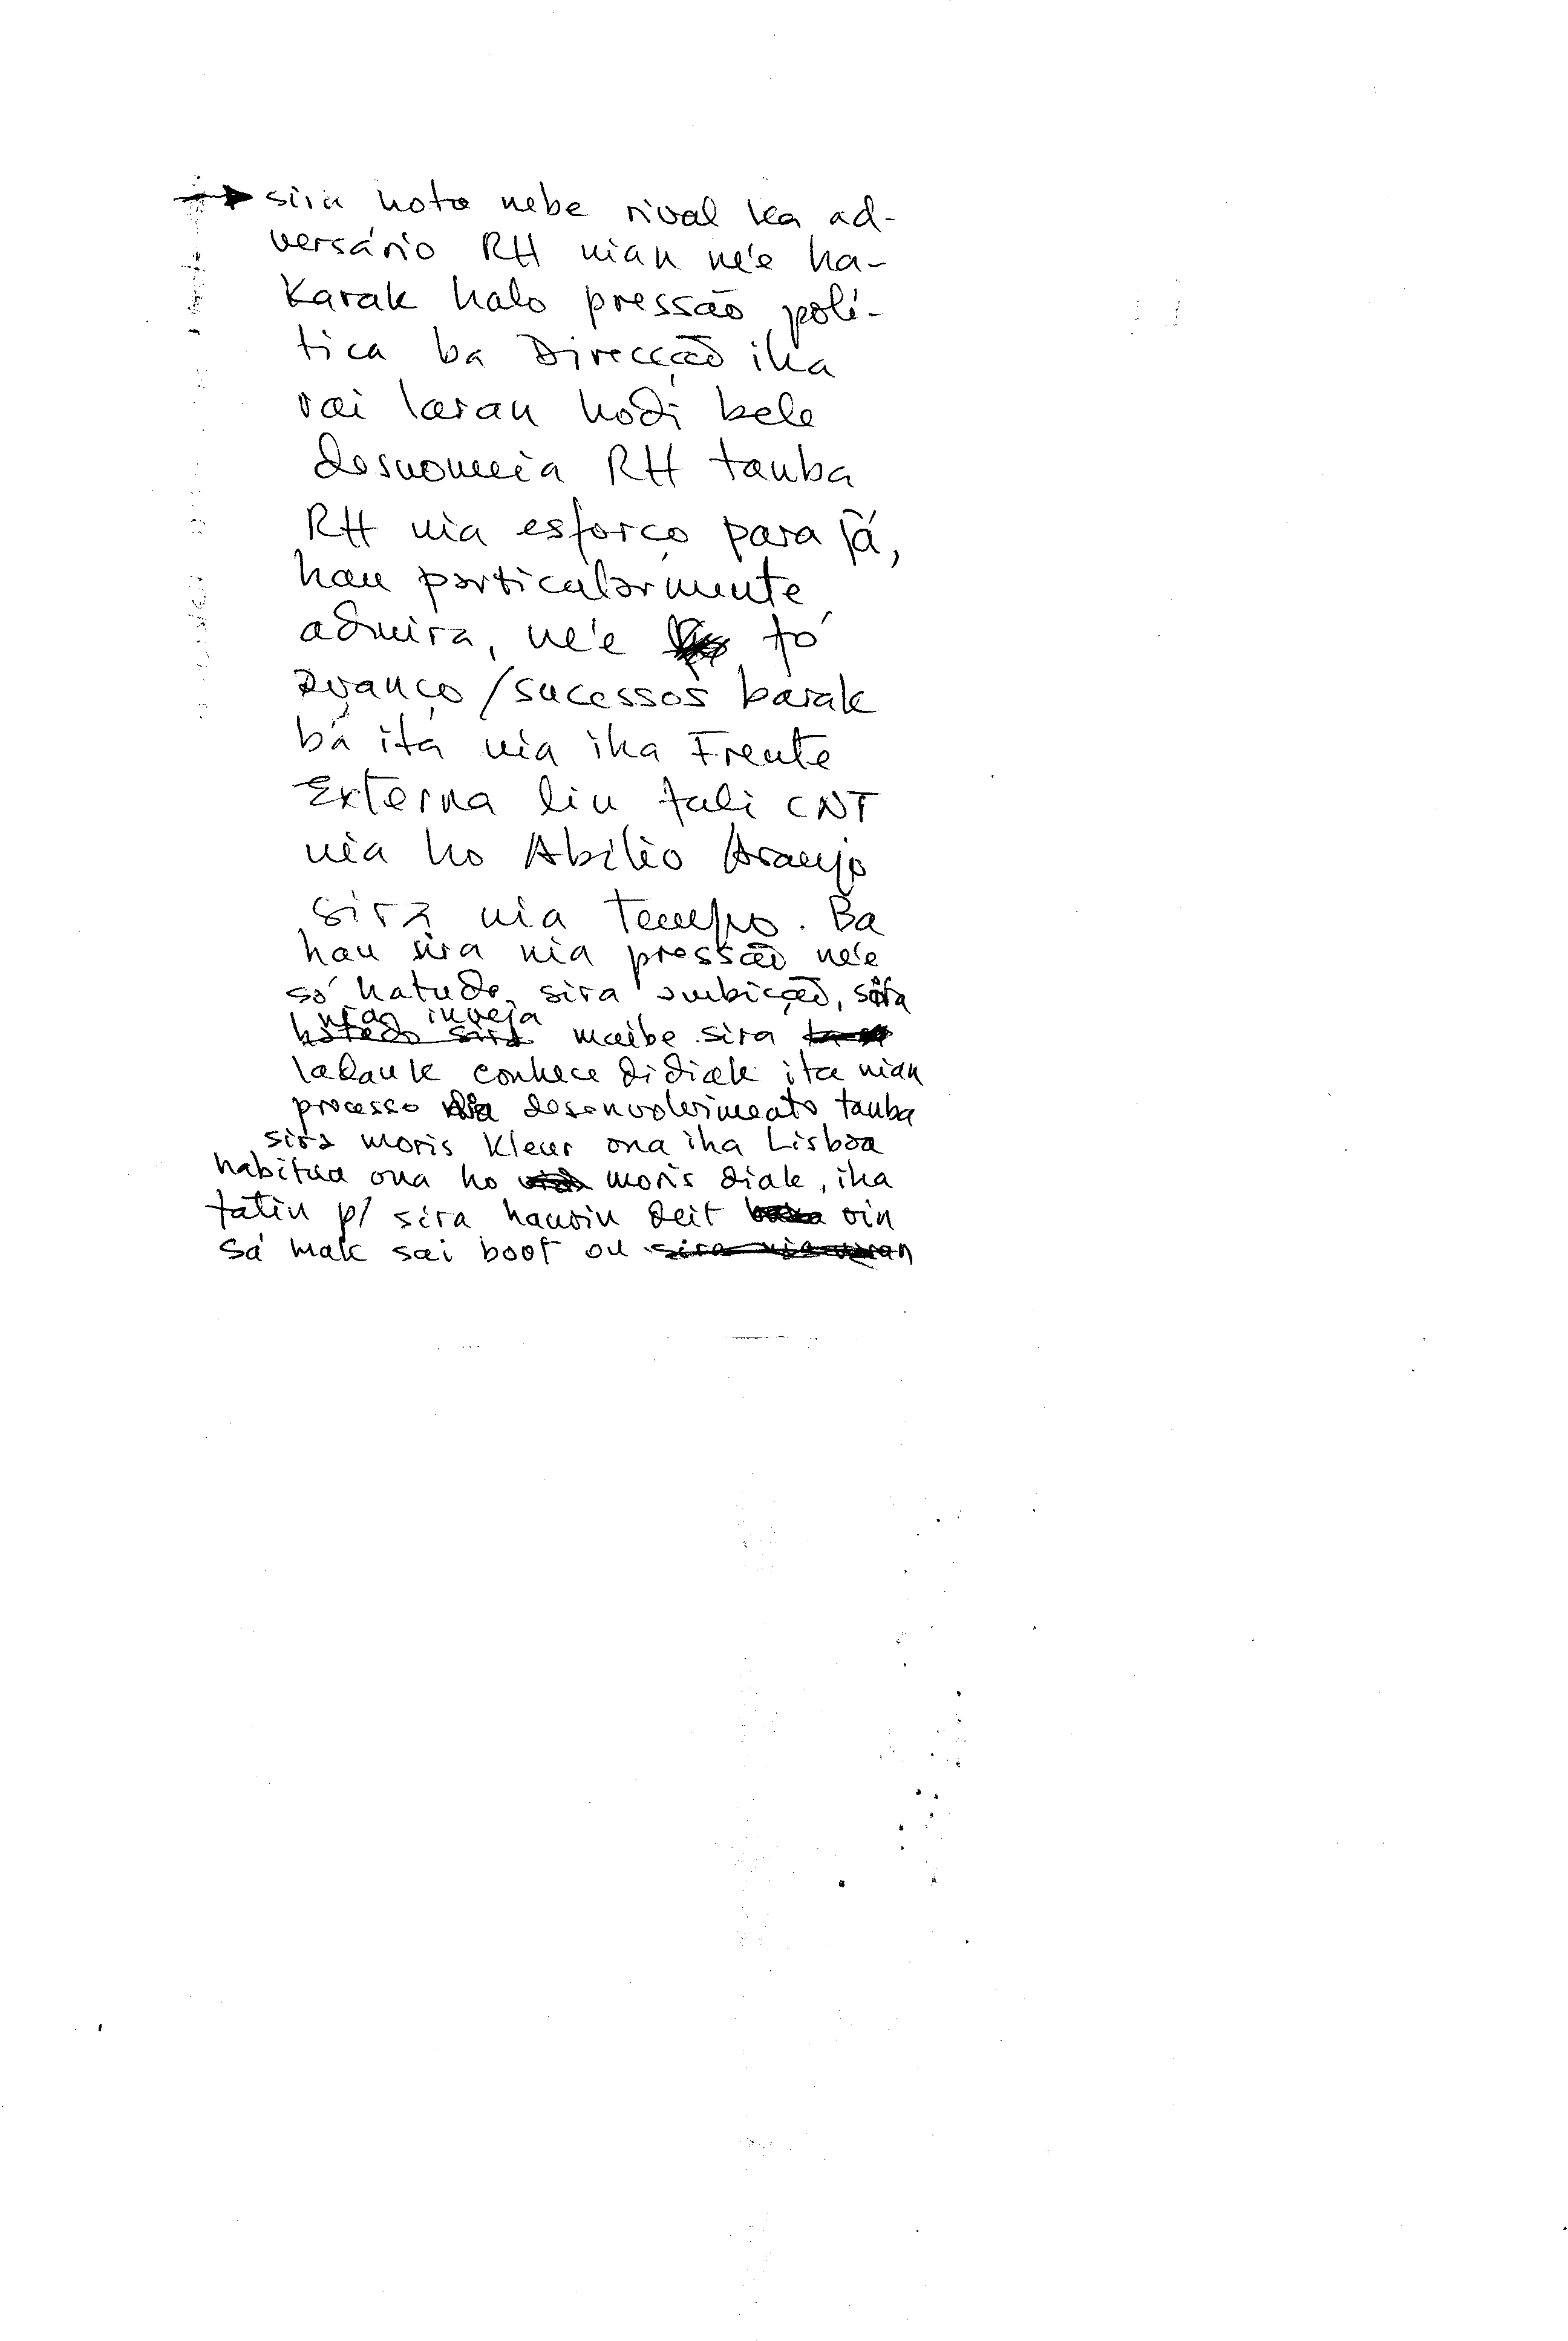 → sira hoto nebe rival ka ad-
versário RH nian ne'e ha-
karak halo pressão polí-
tica ba Direcção iha
rai laran hodi bele
desnomeia RH tanba
RH nia esforço para já,
hau particularmente
admira, ne'e fó
avanço/sucessos barak
bá ita nia iha Frente
Externa liu fali CNT
nia ho Abílio Araujo
sira nia tempo. Ba
hau sira nia pressão ne'e
só hatudo sira ambição, sira
nian inveja
maibe sira
ladauk conhece didiak ita nian
processo desenvolvimento tanba
sira moris kleur ona iha Lisboa
habitua ona ho moris diak, iha
fatin p/ sira hanoin deit oin
sá mak sai boot ou